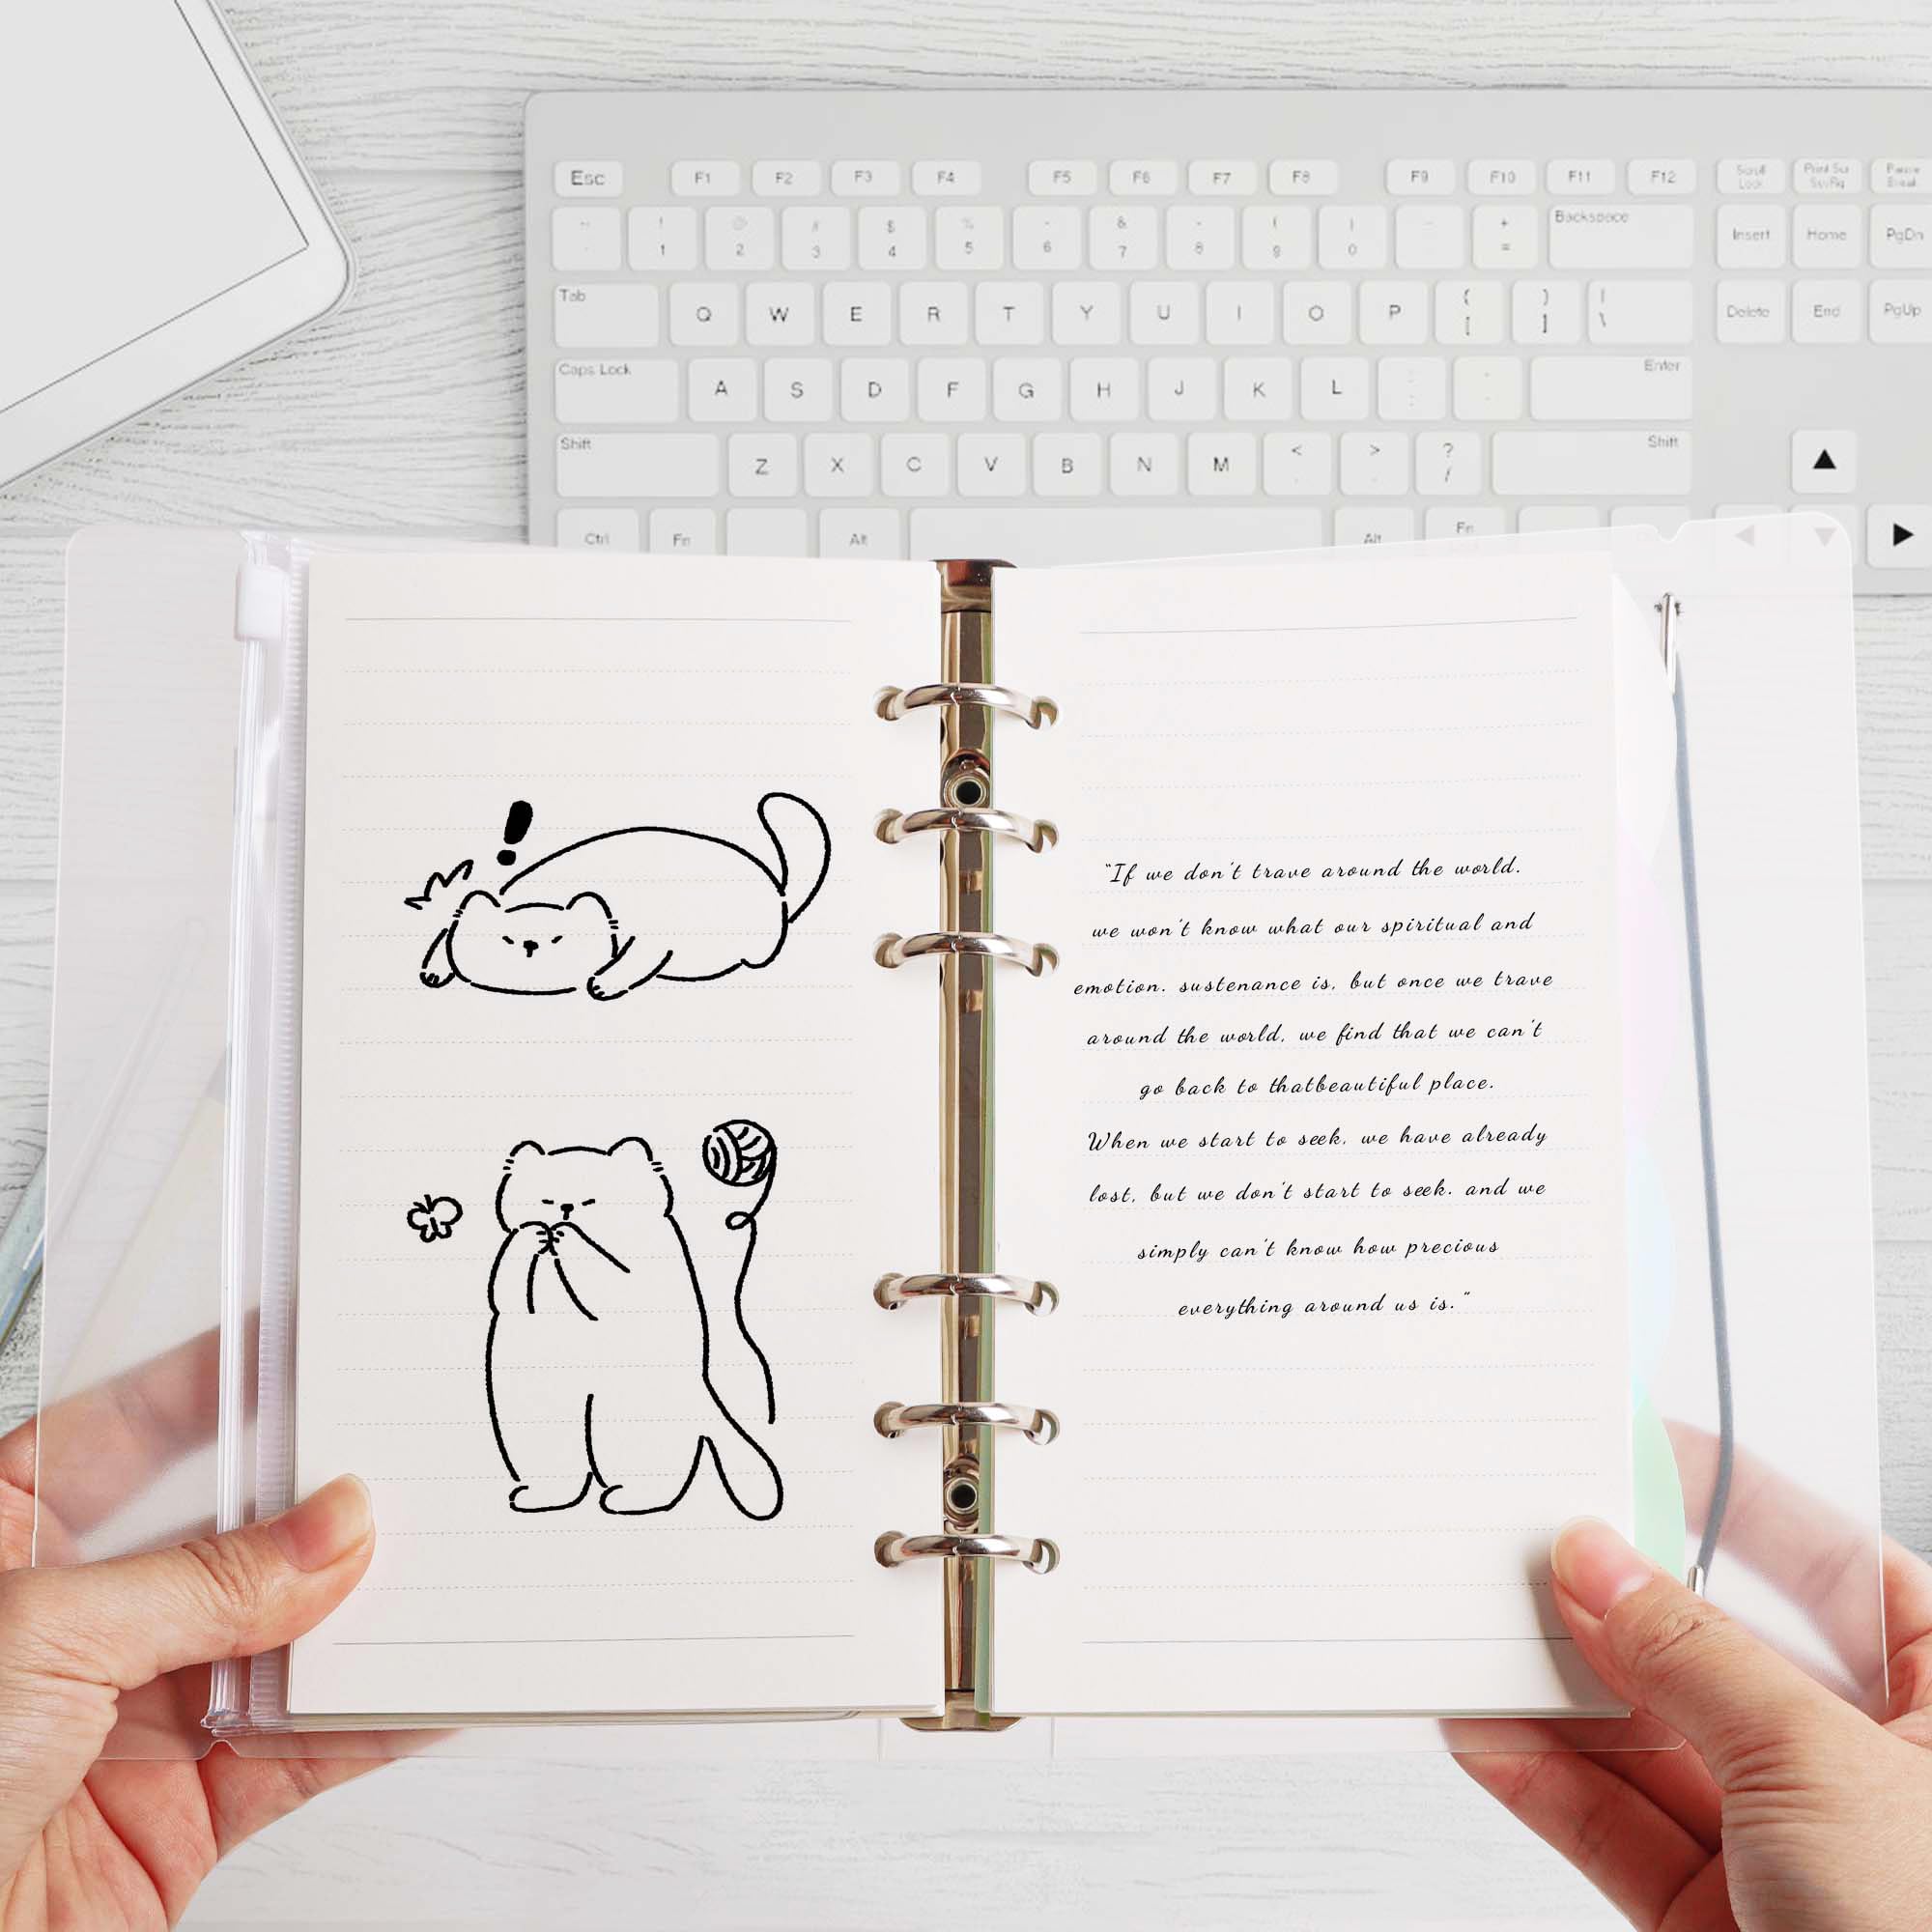 Esc F1 F2 F3 F4 F5 F6 F7 F8 F9 F10 F11 F12
! 1 2 # 3 $ 4 % 5 6 & 7 8 ( 9 ) 0 + = Backspace Insert Home PgDn
Tab Q W E R T Y U I O P { [ } ] | \ Delete End PgUp
Caps Lock A S D F G H J K L Enter
Shift Z X C V B N M < > ? / Shift
Ctrl Fn Alt Alt Fn
!
"If we don't trave around the world.
we won't know what our spiritual and
emotion. sustenance is, but once we trave
around the world, we find that we can't
go back to thatbeautiful place.
When we start to seek, we have already
lost, but we don't start to seek. and we
simply can't know how precious
everything around us is."